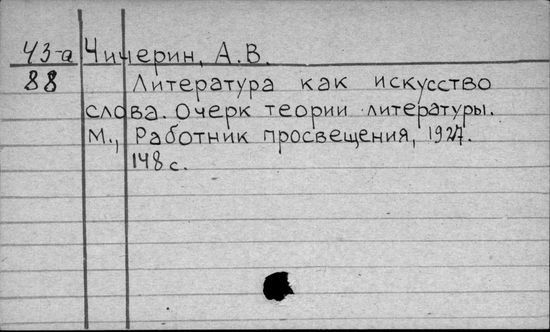 43-а Чичерин, А.В.
88 Литература как искусство
слова. Очерк теории литературы.
М., Работник просвещения, 1927.
148 с.